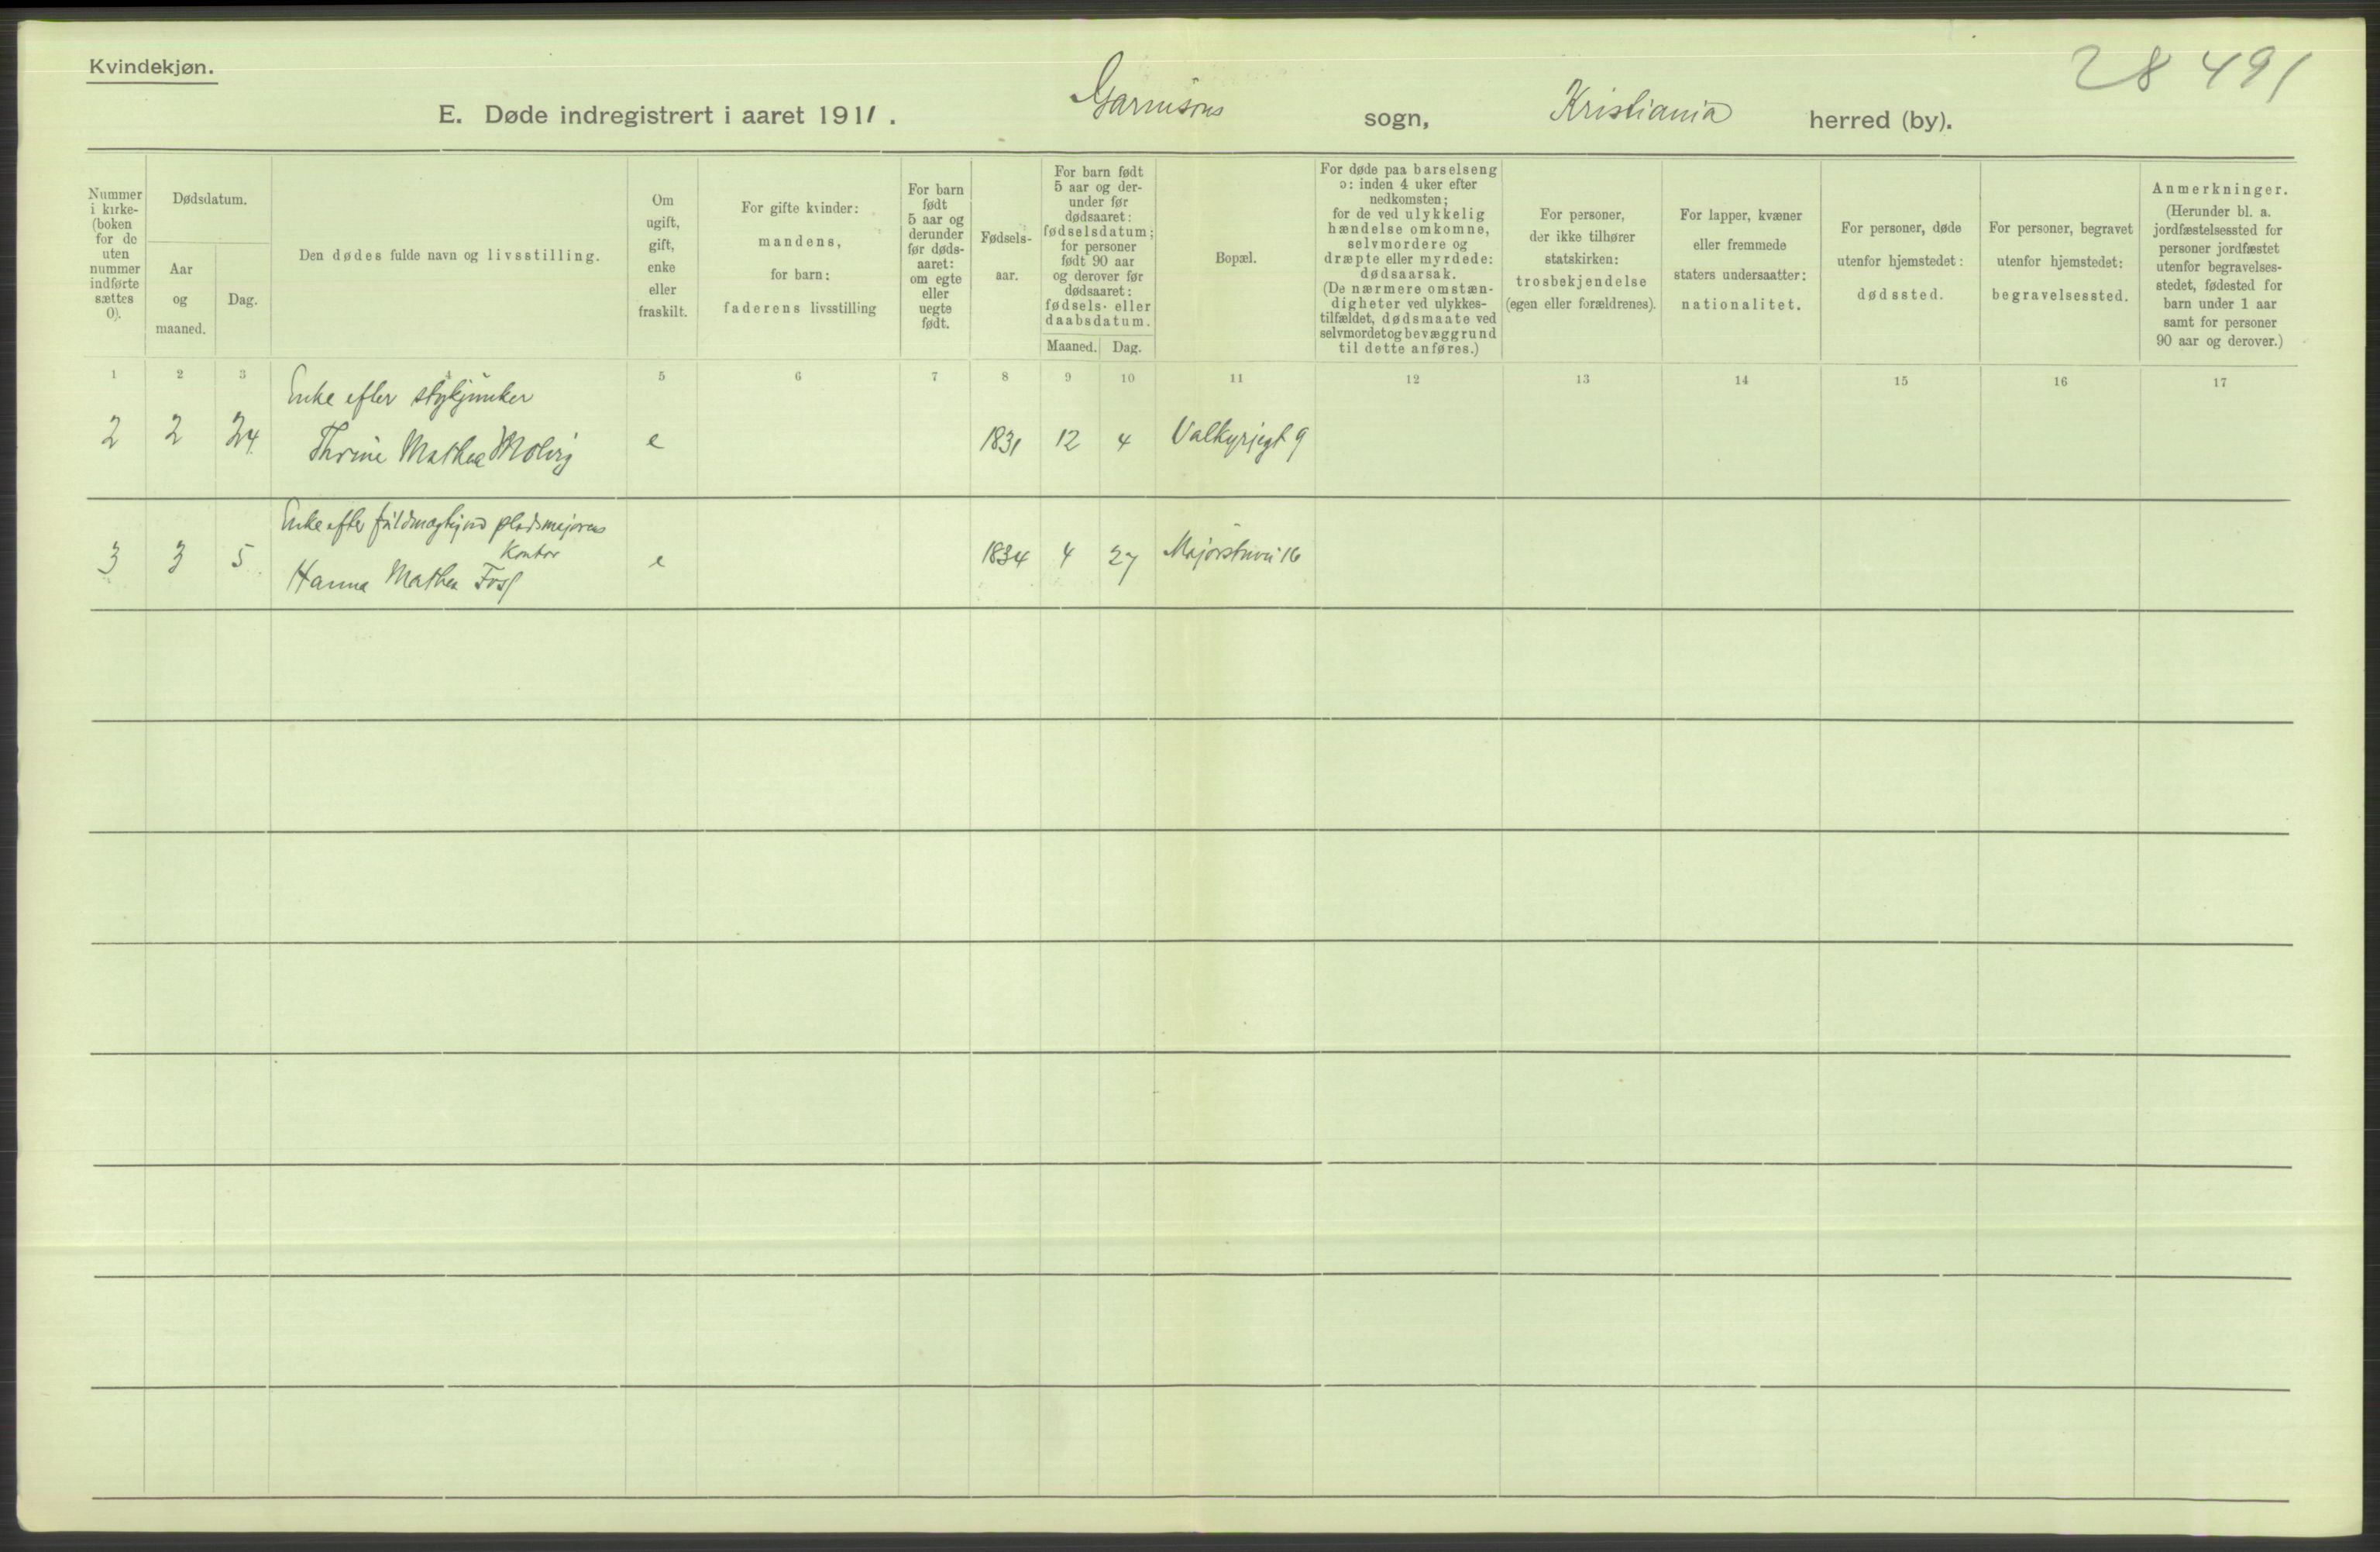 Kvindekjøn.
28 491
E. Døde indregistrert i aaret 1911. Garnisons sogn, Kristiania herred (by).
Nummer
i kirke-
(boken
for de
uten
nummer
indførte
sættes
0).
Dødsdatum.
Aar
og
maaned.
Dag.
Den dødes fulde navn og livsstilling.
Om
ugift,
gift,
enke
eller
fraskilt.
For gifte kvinder:
mandens,
for barn:
faderens livsstilling
For barn
født
5 aar og
derunder
før døds-
aaret:
om egte
eller
uegte
født.
Fødsels-
aar.
For barn født
5 aar og der-
under før
dødsaaret:
fødselsdatum;
for personer
født 90 aar
og derover før
dødsaaret:
fødsels- eller
daabsdatum.
Maaned. Dag.
Bopæl.
For døde paa barselseng
ɔ: inden 4 uker efter
nedkomsten;
for de ved ulykkelig
hændelse omkomne,
selvmordere og
dræpte eller myrdede:
dødsaarsak.
(De nærmere omstæn-
digheter ved ulykkes-
tilfældet, dødsmaate ved
selvmordet og bevæggrund
til dette anføres.)
For personer,
der ikke tilhører
statskirken:
trosbekjendelse
(egen eller forældrenes).
For lapper, kvæner
eller fremmede
staters undersaatter:
nationalitet.
For personer, døde
utenfor hjemstedet:
dødssted.
For personer, begravet
utenfor hjemstedet:
begravelsessted.
Anmerkninger.
(Herunder bl. a.
jordfæstelsessted for
personer jordfæstet
utenfor begravelses-
stedet, fødested for
barn under 1 aar
samt for personer
90 aar og derover.)
1 2 3 4 5 6 7 8 9 10 11 12 13 14 15 16 17
Enke efter stykjunker
2 2 24 Thrine Mathea Molvig e 1831 12 4 Valkyrjegt 9
Enke efter fuldmægtig ved pladsmajorens
Kontor
3 3 5 Hanna Mathea Foss e 1834 4 27 Majorstuvei 16